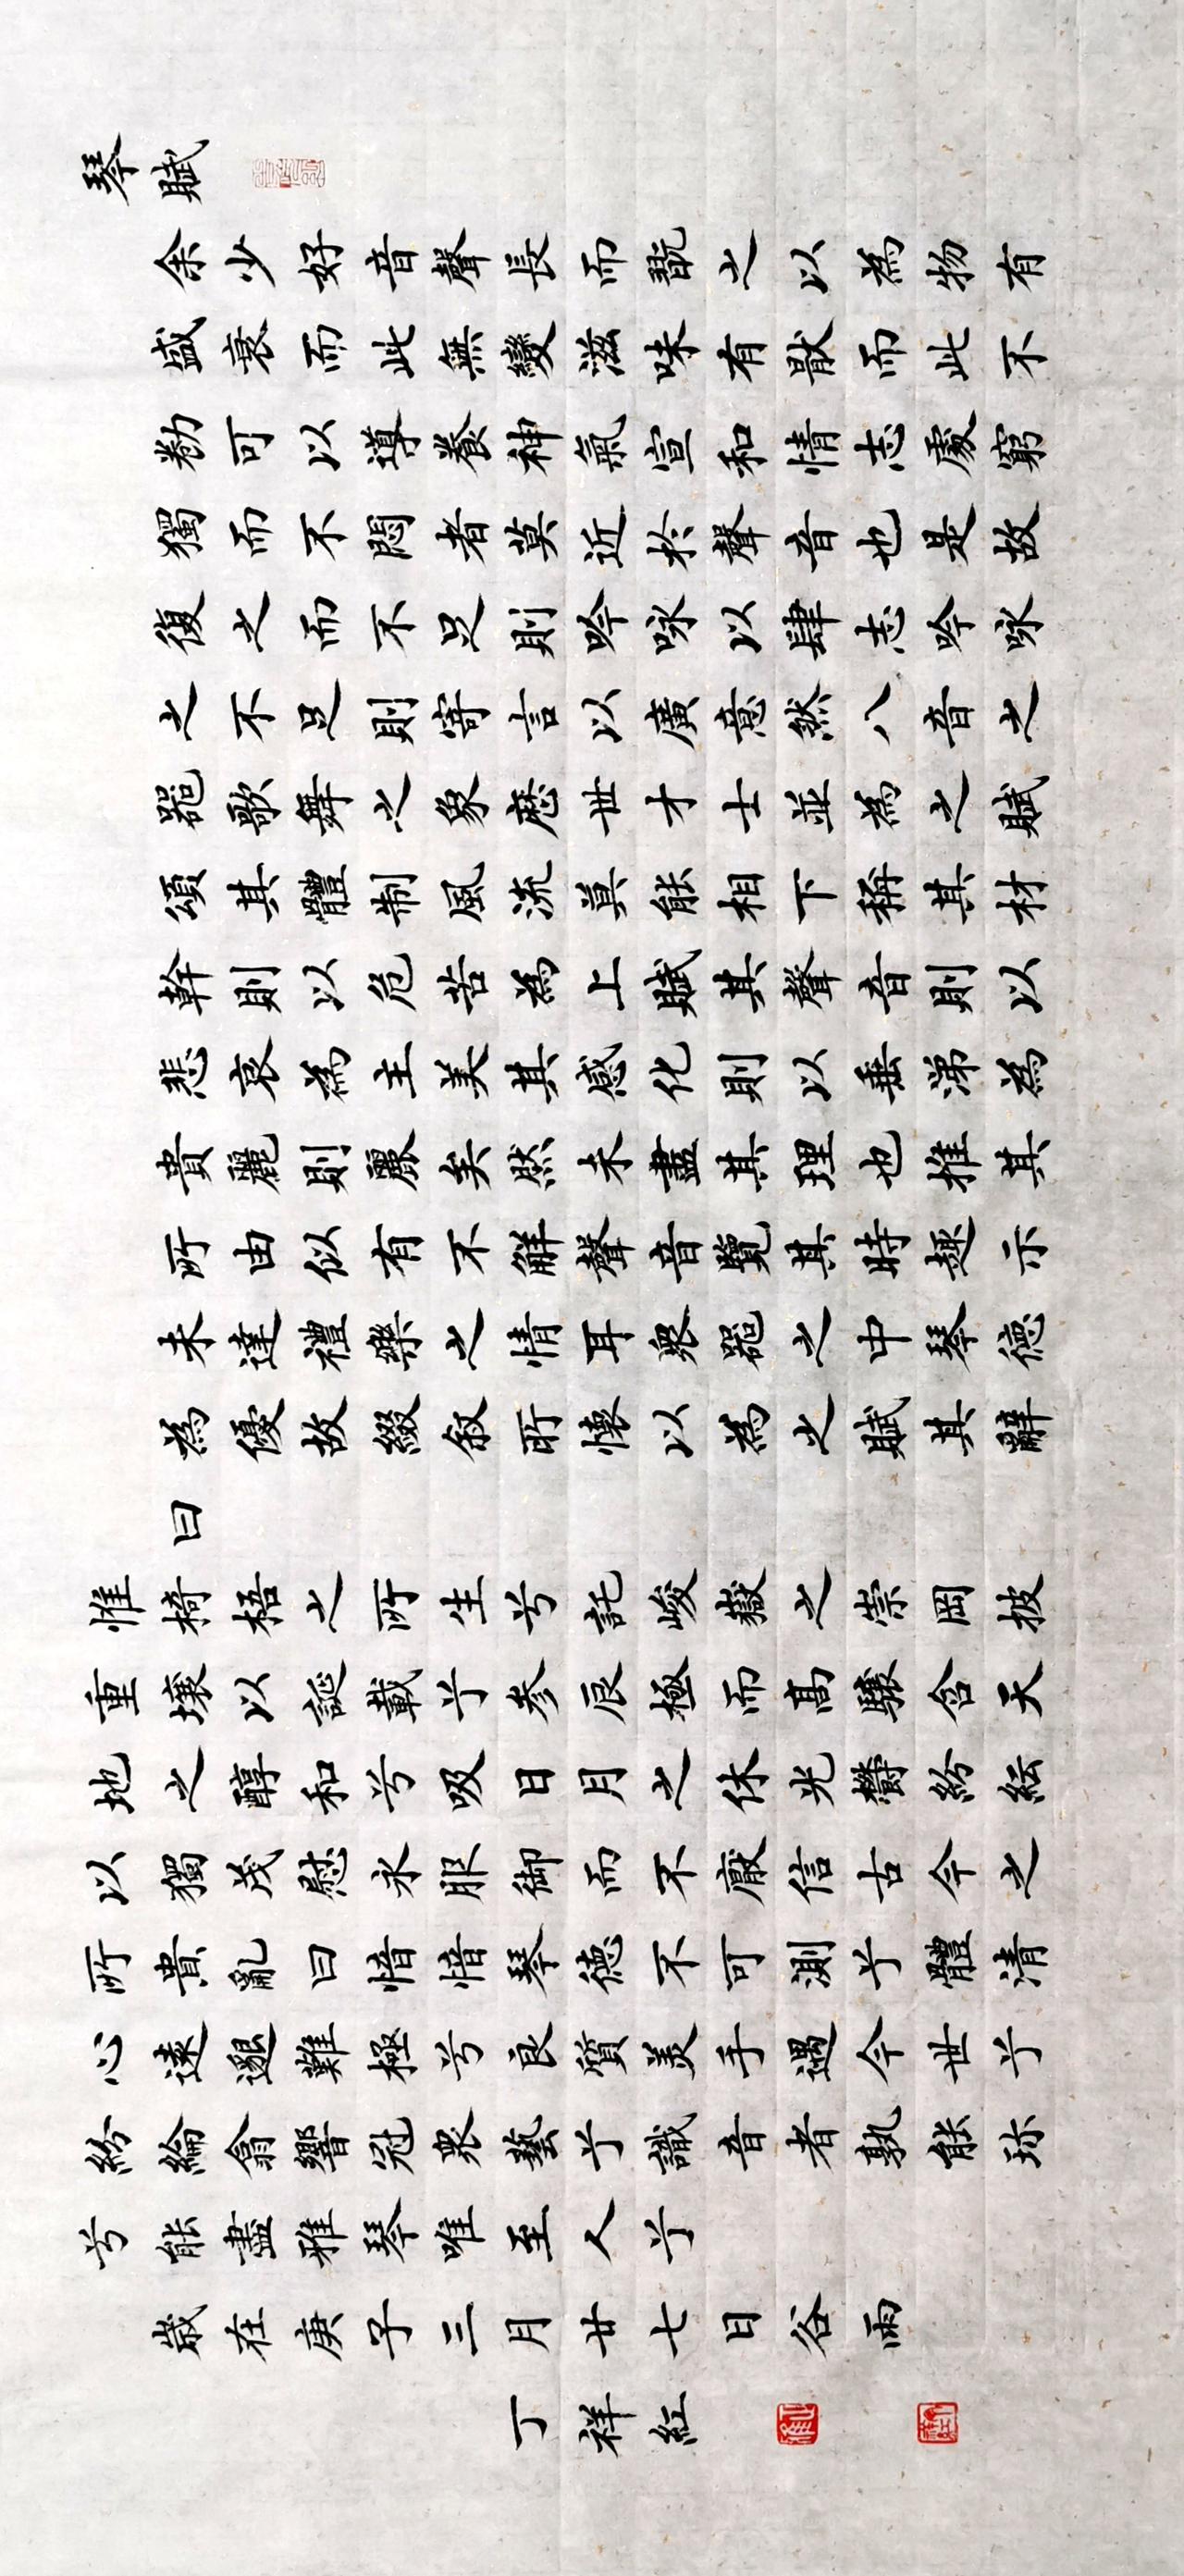 琴賦
余少好音聲長而翫之以為物有
盛衰而此無變滋味有猒而此不
勌可以導養神氣宣和情志處窮
獨而不悶者莫近於聲音也是故
復之而不足則吟咏以肆志吟咏
之不足則寄言以廣意然八音之
器歌舞之象歷世才士並為之賦
頌其體制風流莫能相下稱其材
幹則以危苦為上賦其聲音則以
悲哀為主美其感化則以垂涕為
貴麗則麗矣然未盡其理也推其
所由似有不解聲音覽其時趣示
未達禮樂之情耳衆器之中琴德
為優故綴叙所懷以為之賦其辭
曰
惟椅梧之所生兮託峻嶽之崇岡披
重壤以誕載兮參辰極而高驤含天
地之醇和兮吸日月之休光鬱紛紜
以獨茂慰永服御而不厭信古今之
所貴亂曰愔愔琴德不可測兮體清
心遠邈難極兮良質美手遇今世兮
紛綸翕響冠衆藝兮識音者孰能珍
兮能盡雅琴唯至人兮
歲在庚子三月廿七日谷雨
丁祥紅